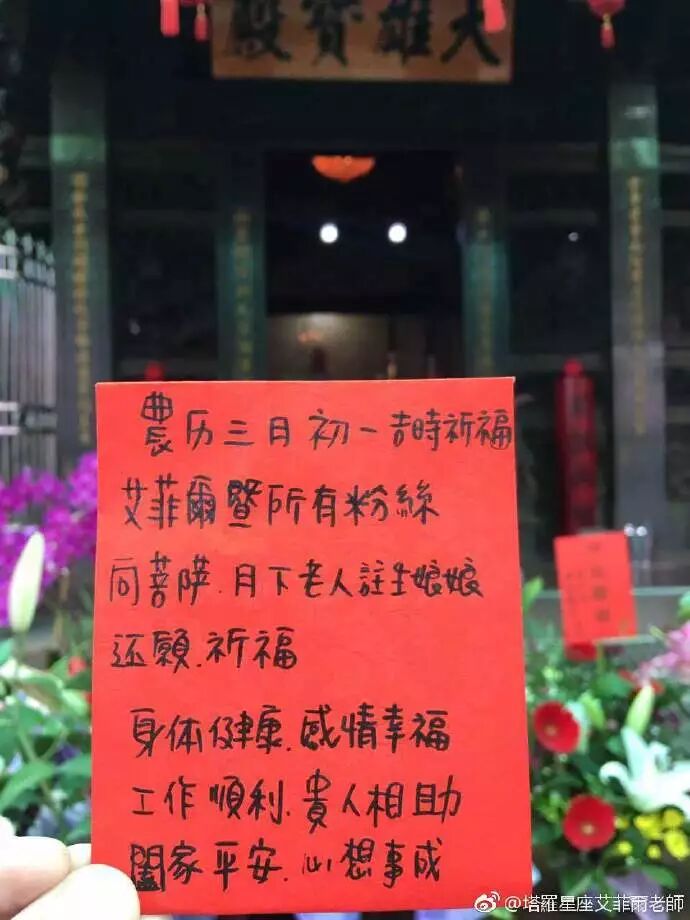 大雄寶殿
農历三月初一吉時祈福
艾菲爾暨所有粉絲
向菩萨.月下老人註生娘娘
还願.祈福
身体健康.感情幸福
工作順利.貴人相助
闔家平安.心想事成
@塔羅星座艾菲爾老師